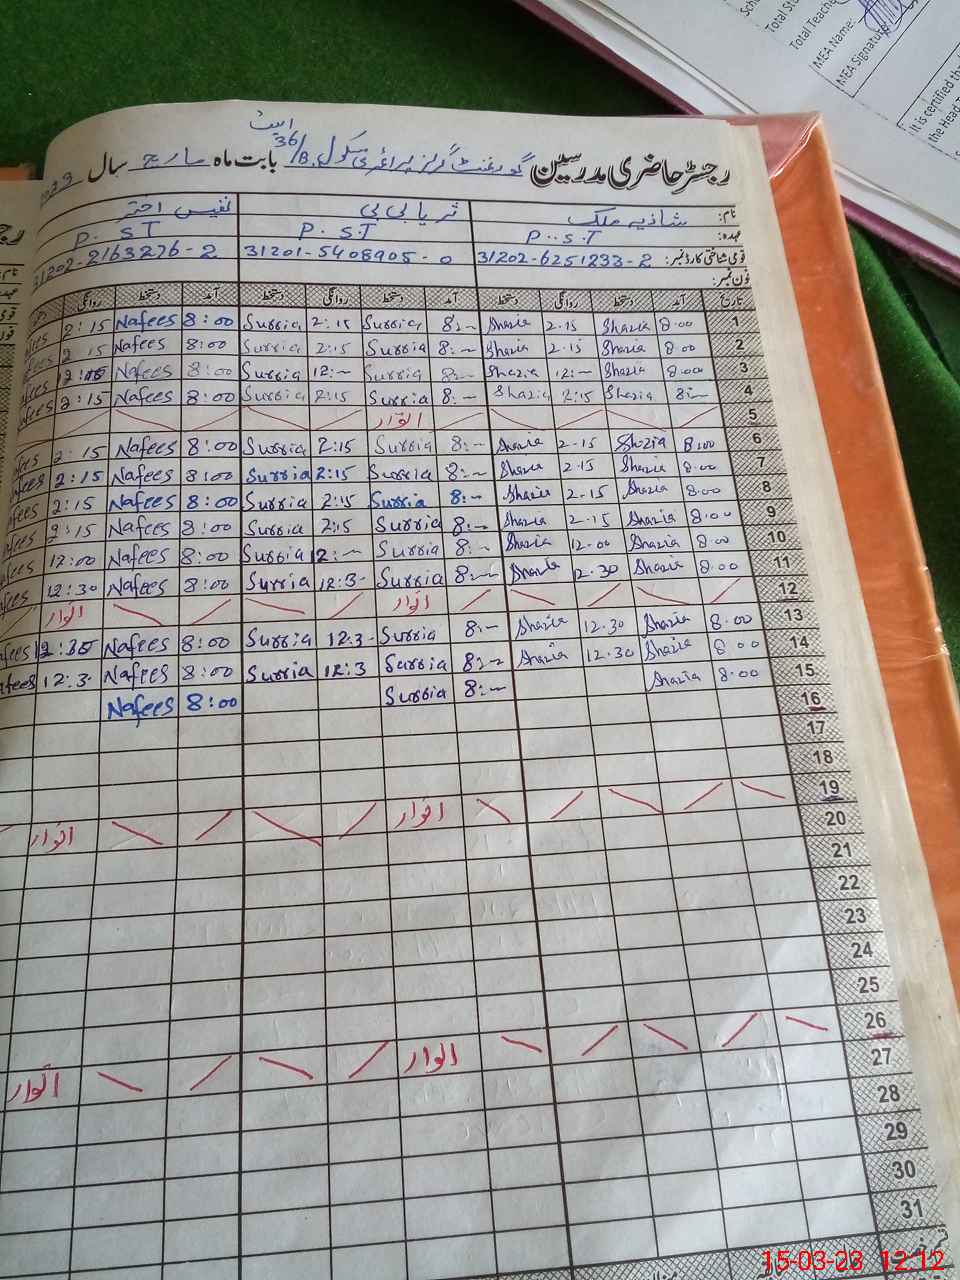 Total Teache
MEA Name:
MEA Signatur
It is certified tha
the Head T
رجسٹر حاضری مدرسین گورنمنٹ گرلز پرائمری سکول 36/B بابت ماہ مارچ سال
نام: شازیہ ملک ثریا بی بی نفیس اختر
عہدہ: P.S.T P.S.T P.S.T
قومی شناختی کارڈ نمبر: 31202-6251233-2 31201-5408905-0 31202-2163276-2
فون نمبر:
تاریخ آمد دستخط روانگی دستخط آمد دستخط روانگی دستخط آمد دستخط روانگی
1 8:00 Shazia 2.15 Shazia 8:~ Surria 2:15 Surria 8:00 Nafees 2:15
2 8:00 Shazia 2.15 Shazia 8:~ Surria 2:15 Surria 8:00 Nafees 2 15
3 8:00 Shazia 12:~ Shazia 8:~ Surria 12:~ Surria 8:00 Nafees
4 8:~ Shazia 2:15 Shazia 8:~ Surria 2:15 Surria 8:00 Nafees 2:15
5 اتوار
6 8:00 Shazia 2.15 Shazia 8:~ Surria 2:15 Surria 8:00 Nafees 2:15
7 8:00 Shazia 2.15 Shazia 8:~ Surria 2:15 Surria 8:00 Nafees 2:15
8 8.00 Shazia 2.15 Shazia 8:~ Surria 2:15 Surria 8:00 Nafees 2:15
9 8.00 Shazia 2.15 Shazia 8:~ Surria 2:15 Surria 8:00 Nafees 2:15
10 8.00 Shazia 12.00 Shazia 8:~ Surria 12:~ Surria 8:00 Nafees 12:00
11 8.00 Shazia 12.30 Shazia 8:~ Surria 12:3- Surria 8:00 Nafees 12:30
12 اتوار اتوار
13 8.00 Shazia 12.30 Shazia 8:~ Surria 12:3- Surria 8:00 Nafees 12:30
14 8.00 Shazia 12.30 Shazia 8:~ Surria 12:3 Surria 8:00 Nafees 12:3.
15 8.00 Shazia 8:~ Surria 8:00 Nafees
16
17
18
19 اتوار اتوار
20
21
22
23
24
25
26 اتوار اتوار
27
28
29
30
31
15-03-23 12:12